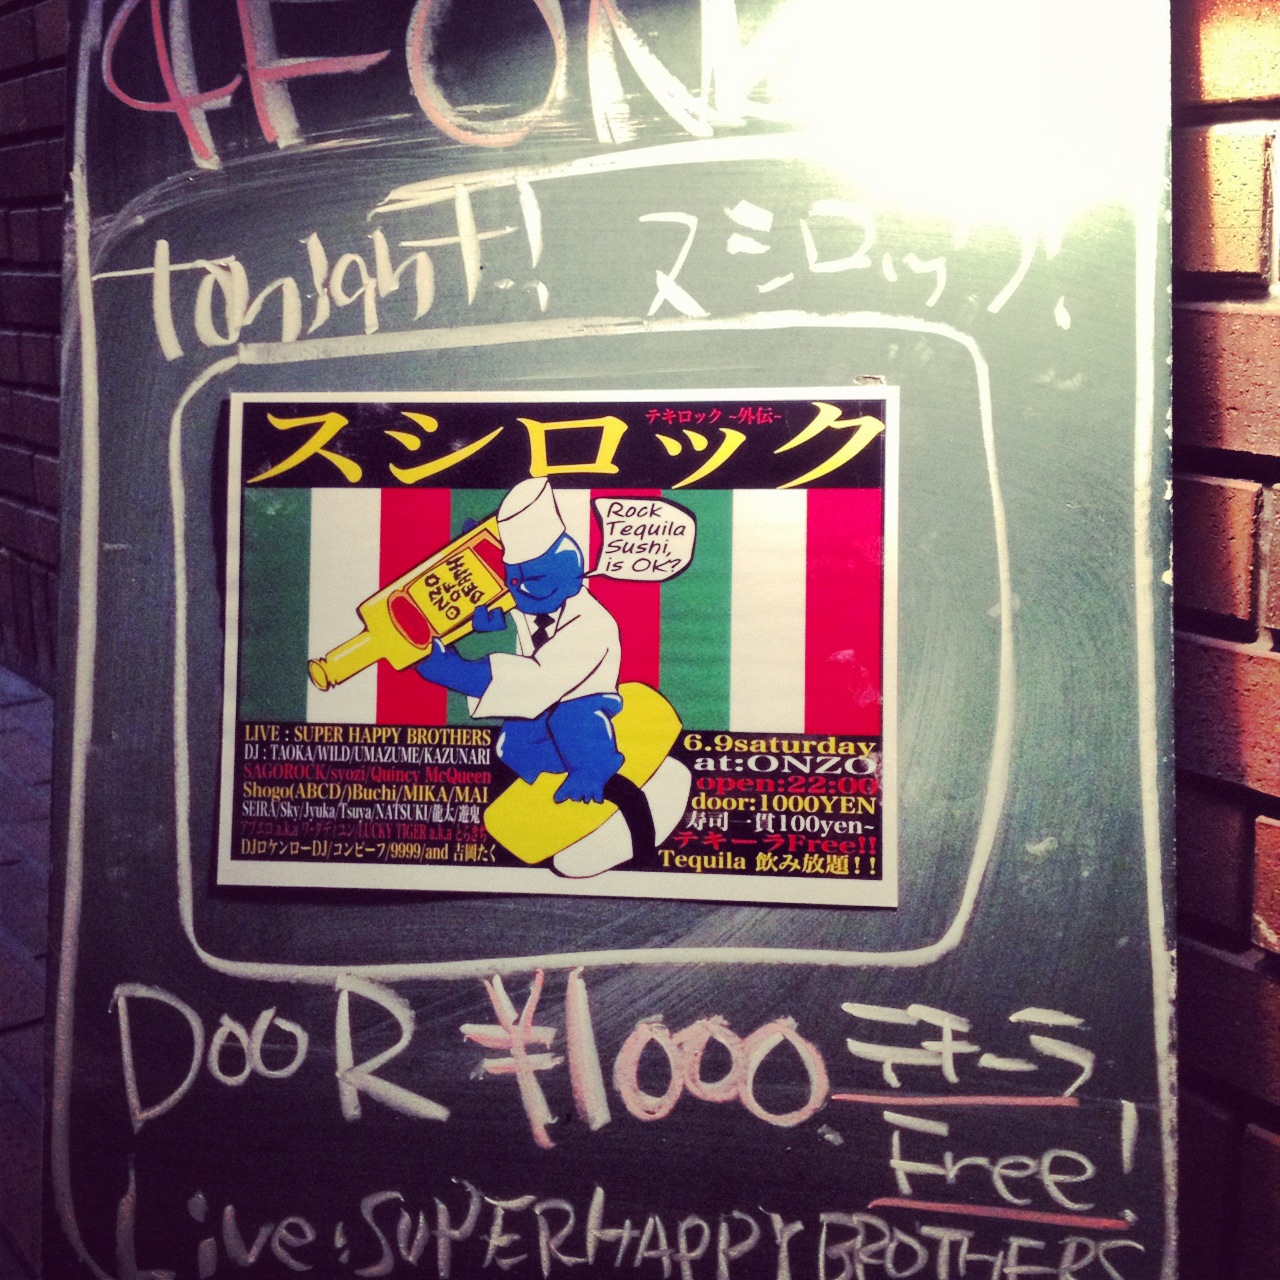 tonighT!! スシロック!
スシロック
テキロック ~外伝~
Rock
Tequila
Sushi,
is OK?
LIVE : SUPER HAPPY BROTHERS
DJ : TAOKA/WILD/UMAZUME/KAZUNARI
SAGOROCK/syozi/Quincy McQueen
Shogo(ABCD/)Buchi/MIKA/MAI
SEIRA/Sky/Jyuka/Tsuya/NATSUKI/龍太/遊鬼
LUCKY TIGER a.k.a とらきち
DJロケンローDJ/コンビーフ/9999/and 吉岡たく
6.9saturday
at:ONZO
open:22:00
door:1000YEN
寿司一貫100yen~
テキーラFree!!
Tequila 飲み放題!!
DooR ¥1000 テキーラ
Free!
Live:SUPERHAPPY BROTHERS